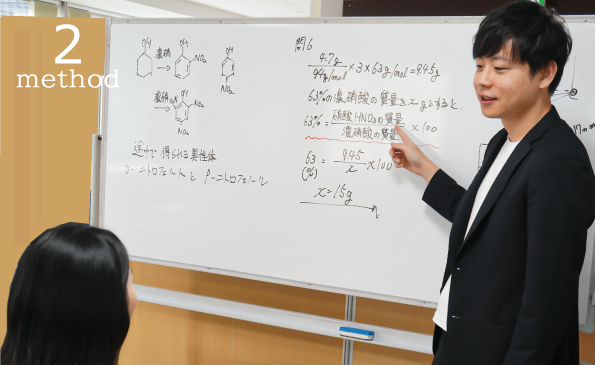 2
method
OH
濃硝
OH
NO₂
OH
NO₂
濃硝
OH
NO₂
NO₂
途中で得られる異性体
o-ニトロフェノールと p-ニトロフェノール
問6
4.7g/94g/mol × 3 × 63g/mol = 9.45g
63%の濃硝酸の質量を x gとすると、
63% = 硝酸HNO₃の質量/濃硝酸の質量 × 100
63 = 9.45/x × 100
(%)
x = 15g